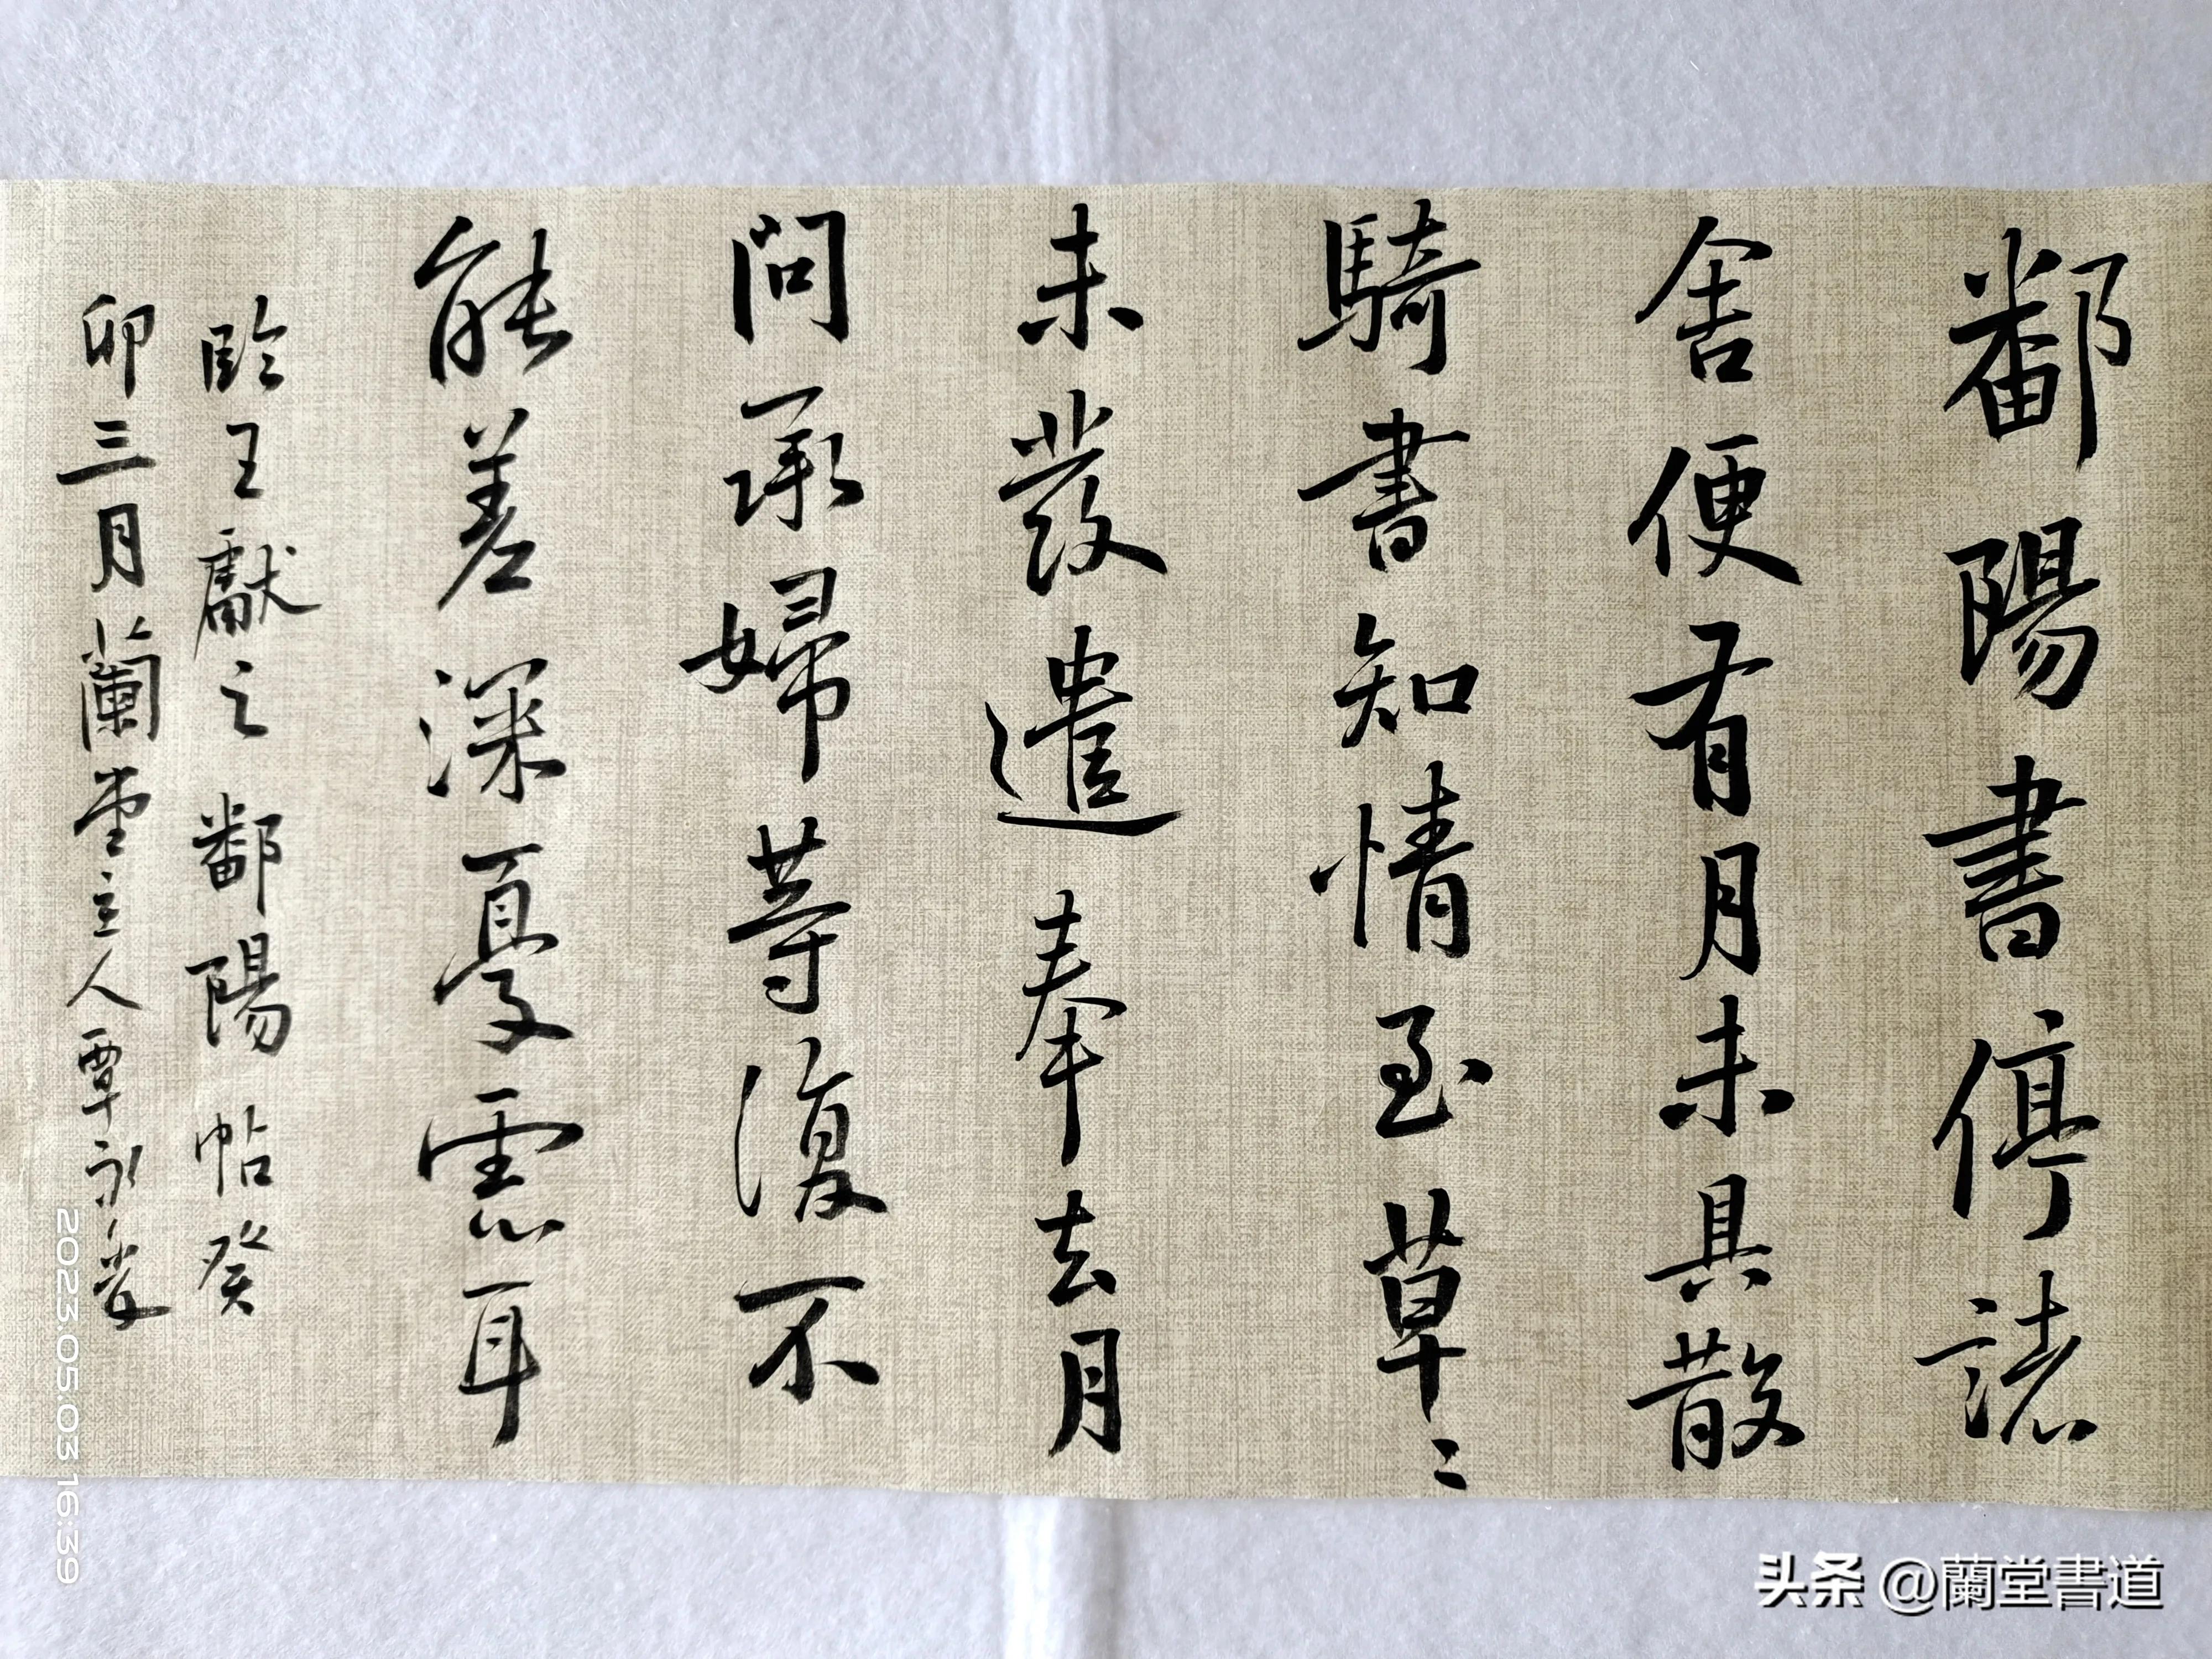 鄱陽書停諸
舍便有月未具散
騎書知情至草々
未發遣奉去月
問承婦等復不
能差深憂慮耳
臨王獻之鄱陽帖癸
卯三月蘭堂主人覃永
2023.05.03 16:39
头条 @蘭堂書道